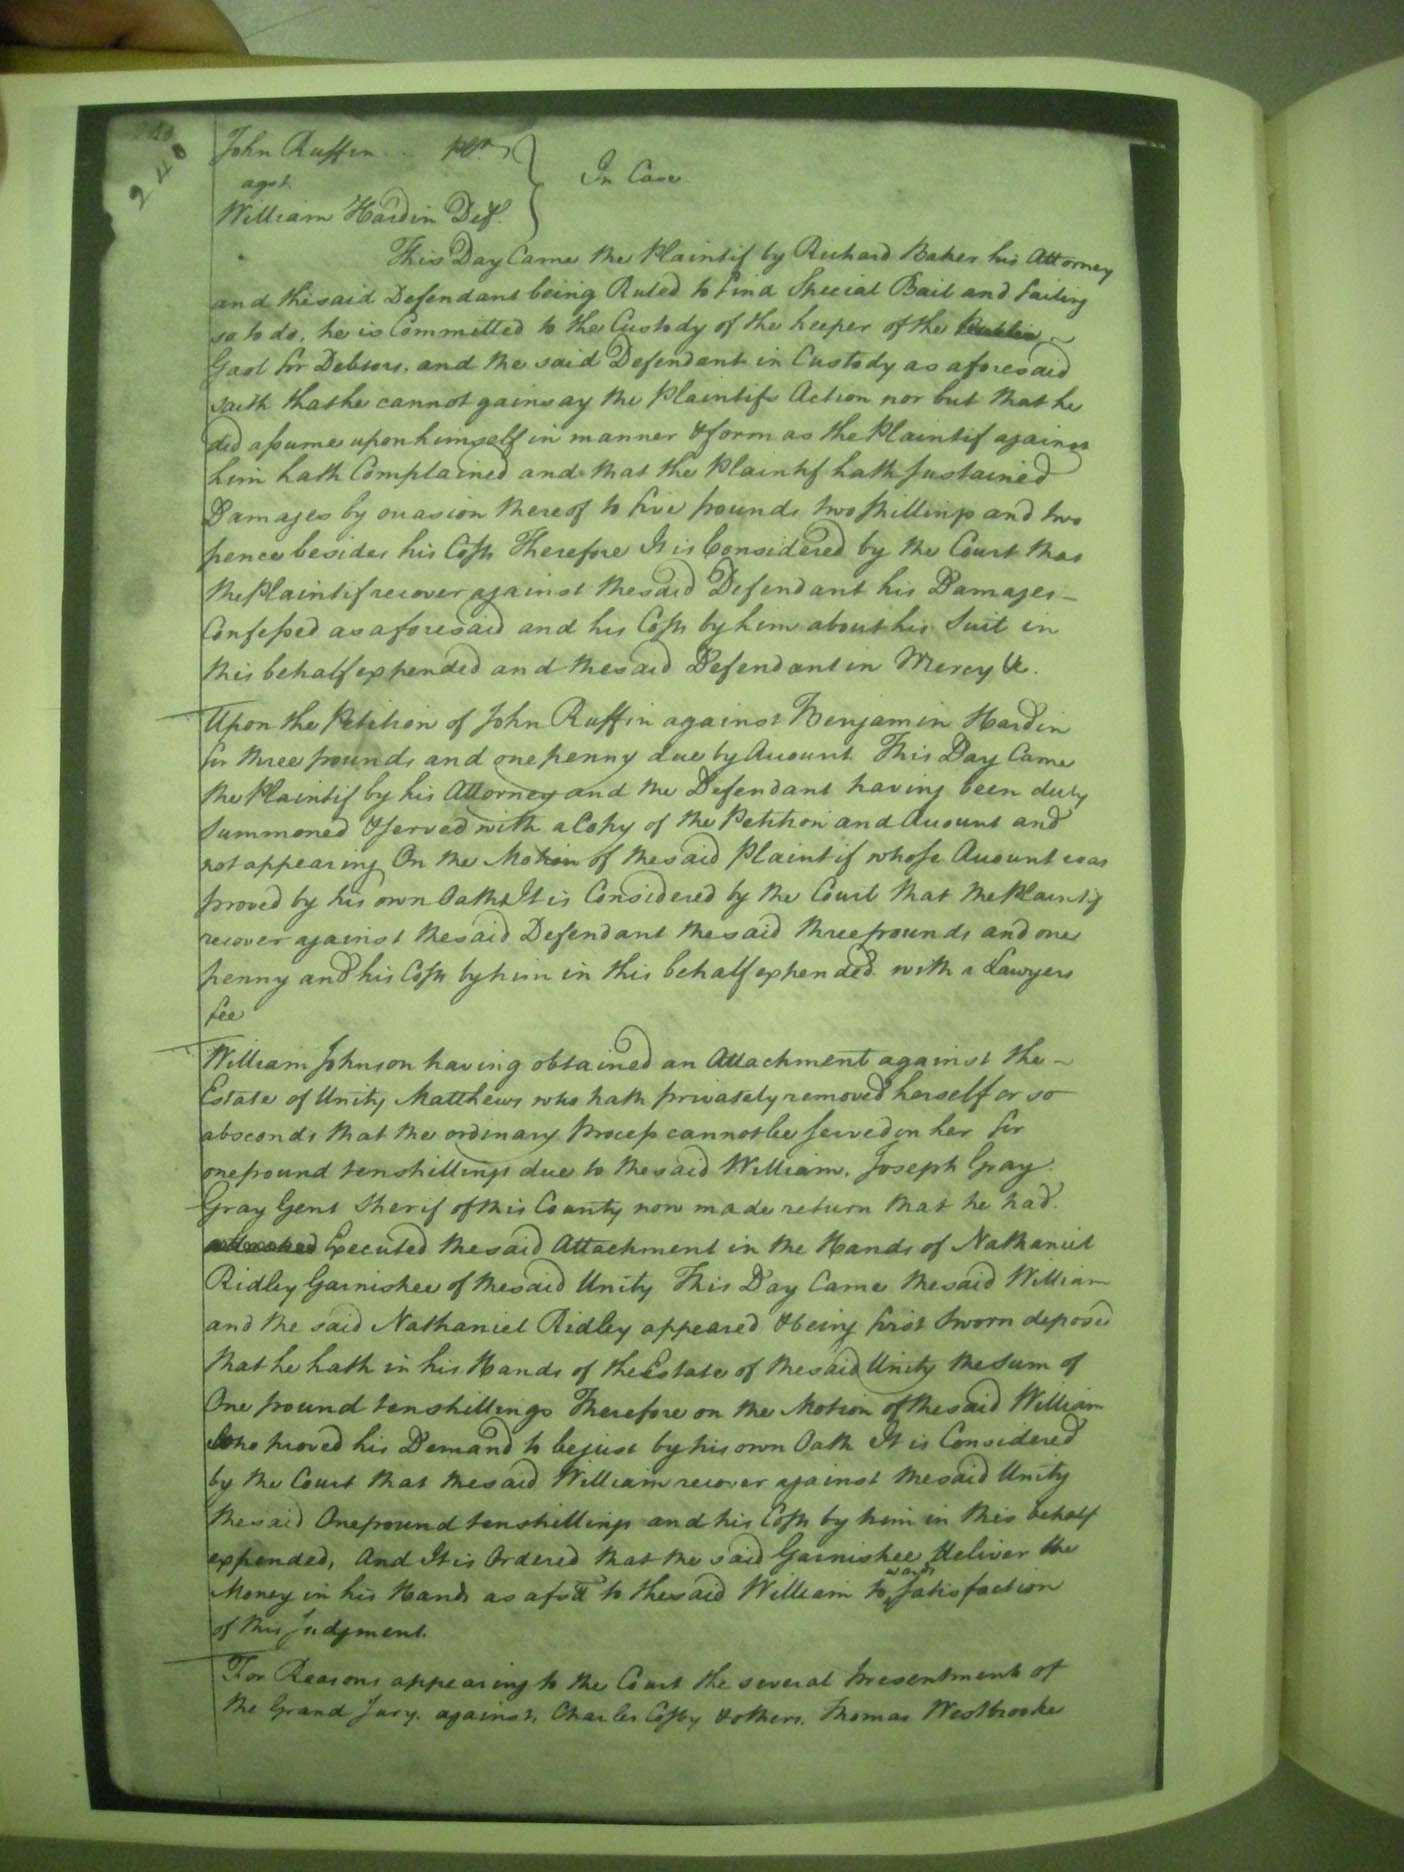 240
John Ruffin .. plt.
agst.
William Hardin Deft.
In Case
This Day Came the Plaintif by Richard Baker his Attorney
and the said Defendant being Ruled to find Special Bail and failing
so to do, he is Committed to the Custody of the keeper of the
Gaol for Debtors, and the said Defendant in Custody as aforesaid
saith that he cannot gainsay the Plaintifs Action nor but that he
did assume upon himself in manner & form as the Plaintif against
him hath Complained and that the Plaintif hath Sustained
Damages by occasion thereof to five pounds two shillings and two
pence besides his Costs Therefore It is Considered by the Court that
the Plaintif recover against the said Defendant his Damages -
Confessed as aforesaid and his Costs by him about his Suit in
this behalf expended and the said Defendant in Mercy &c.
Upon the Petition of John Ruffin against Benjamin Hardin
for three pounds and one penny due by Account This Day Came
the Plaintif by his Attorney and the Defendant having been duly
Summoned & served with a Copy of the Petition and Account and
not appearing On the Motion of the said Plaintif whose Account was
proved by his own Oath It is Considered by the Court that the Plaintif
recover against the said Defendant the said three pounds and one
penny and his Costs by him in this behalf expended with a Lawyers
fee
William Johnson having obtained an Attachment against the -
Estate of Unity Matthews who hath privately removed herself or so
absconds that the ordinary Process cannot be served on her for
one pound ten shillings due to the said William, Joseph Gray
Gray Gent Sherif of this County now made return that he had
attached Executed the said Attachment in the Hands of Nathaniel
Ridley Garnishee of the said Unity This Day Came the said William
and the said Nathaniel Ridley appeared & being first Sworn deposed
that he hath in his Hands of the Estate of the said Unity the Sum of
One pound ten shillings Therefore on the Motion of the said William
Who proved his Demand to be just by his own Oath It is Considered
by the Court that the said William recover against the said Unity
the said One pound ten shillings and his Costs by him in this behalf
expended, And It is Ordered that the said Garnishee deliver the
Money in his Hands as afsd to the said William towards Satisfaction
of this Judgment.
For Reasons appearing to the Court the several Presentments of
the Grand Jury against, Charles Cosby & others, Thomas Westbrooke